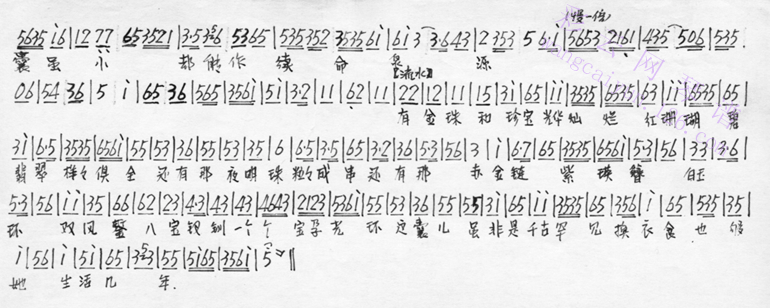 (慢一倍)
5635 i6 | 12 77 | 653521 | 3·5 356 | 5365 | 535352 | 3535 6i | 6i3 | 3·643 | 2 353 | 5 6·i | 5653 2161 | 435 | 506 | 535 ·
囊虽小 却能作续命泉源
【流水】
06 | 54 | 36 | 5 | i | 65 | 36 | 565 | 356i | 5i | 3·2 | 11 | 62 | 11 | 22 | 12 | 11 | 15 | 3i | 65 | ii | 3535 | 6535 | 63 | ii | 6535 | 65 |
有金珠和珍宝光华灿烂 红珊瑚碧
3i | 6·5 | 3535 | 656i | 55 | 53 | 36 | 55 | 53 | 35 | 6 | 6·5 | 3·5 | 65 | 3·2 | 36 | 5·3 | 56 | 3 | i | 6·7 | 65 | 3535 | 656i | 5·3 | 56 | 33 | 3·6 |
翡翠样々俱全还有那夜明珠粒々成串还有那 赤金链紫瑛簪白玉
5·3 | 56 | ii | 35 | 66 | 62 | 23 | 43 | 43 | 43 | 4643 | 2123 | 536i | 55 | 53 | 36 | 55 | 55 | 3i | 65 | ii | 3535 | 65 | 356i | i | 65 | 535 | 35 |
环 双凤錾八宝钗钏一个个宝孕光环这囊儿虽非是千古罕见换衣食也够
i | 56 | i | 5i | 65 | 3·23 | 55 | 5165 | 356i | 5 ‖
她生活几年.